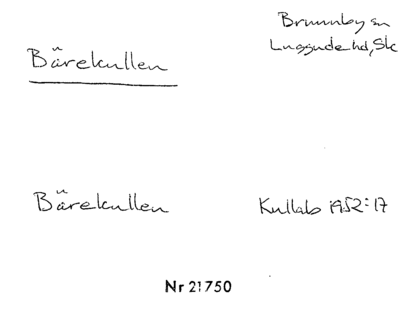 Bärekullen
Brunnby sn
Luggude hd, Sk
Bärekullen
Kullab 1952:17
Nr 21750